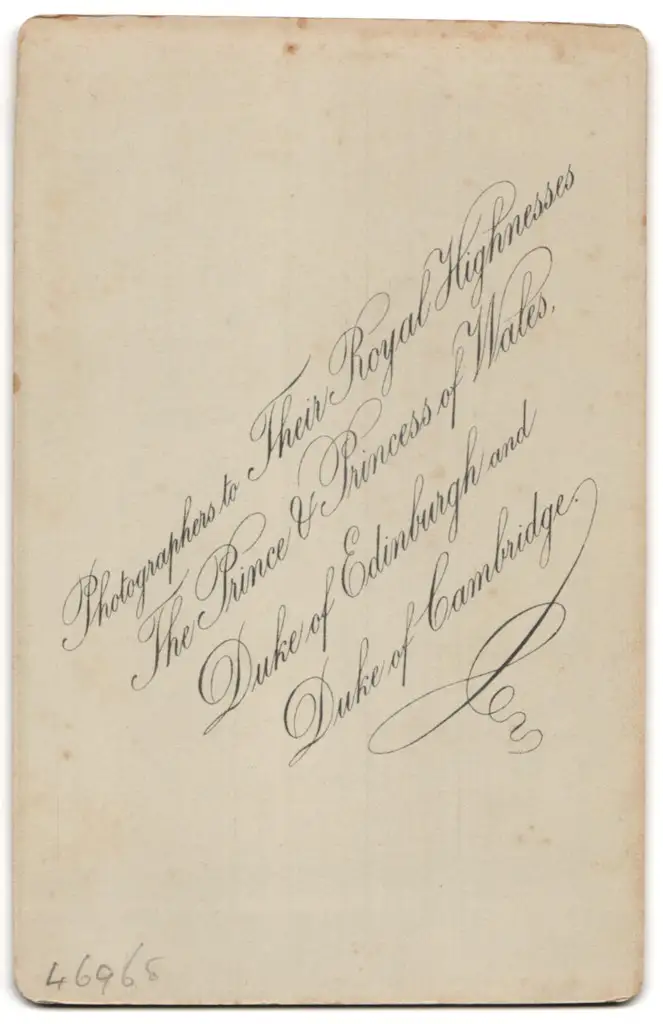 Photographers to Their Royal Highnesses
The Prince & Princess of Wales,
Duke of Edinburgh and
Duke of Cambridge.
46968